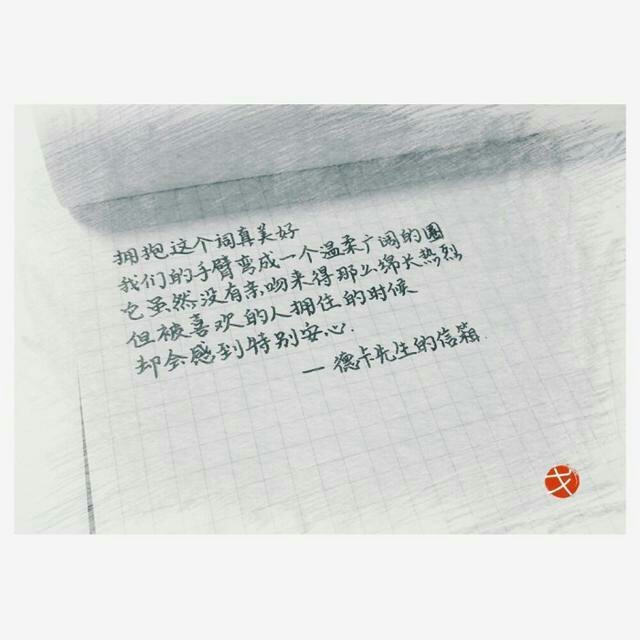 拥抱这个词真美好
我们的手臂弯成一个温柔广阔的圈
它虽然没有亲吻来得那么绵长热烈
但被喜欢的人拥住的时候
却会感到特别安心.
— 德卡先生的信箱.